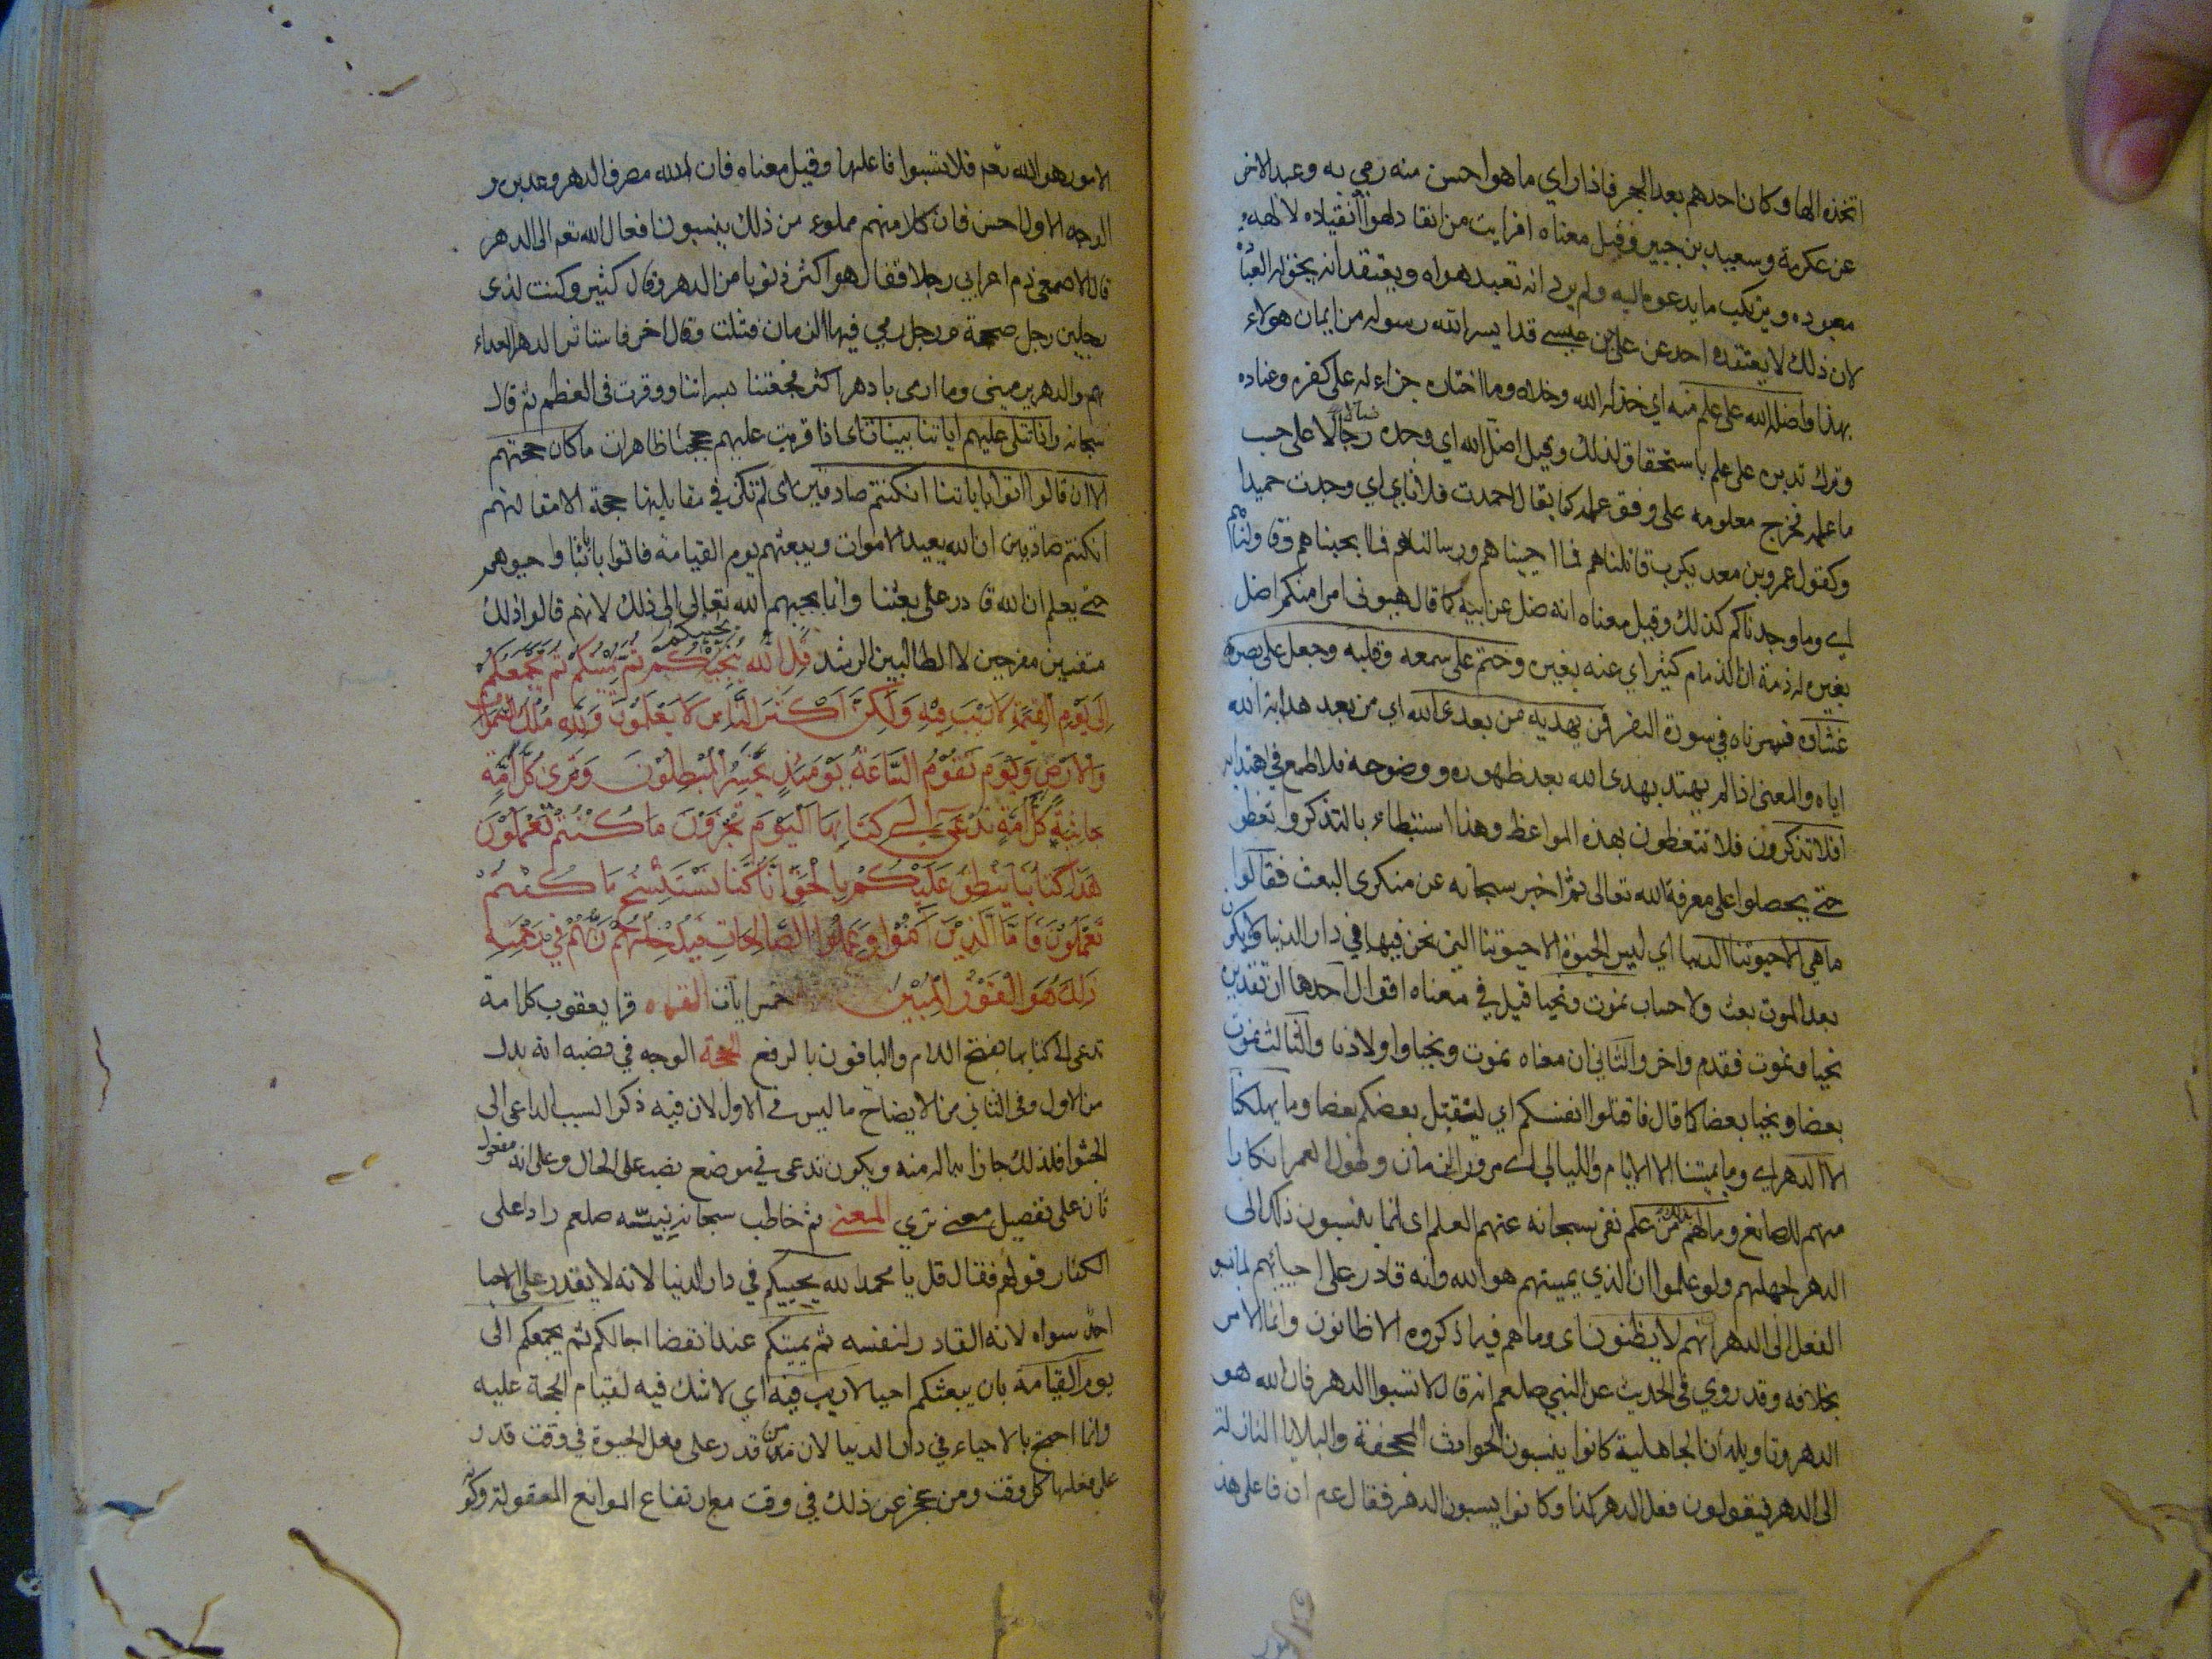 اتخذه الها وكان احدهم يعبد الحجر فاذا راي ما هوا حسن منه رمي به وعبد الاخر
عن عكرمة وسعيد بن جبير وقيل معناه افرايت من انقاد لهواه انقياده لالهه و
معبوده ويرتكب ما يدعوه اليه ولم يرد انه تعبد هواه ويعتقد انه يحق له العبادة
لان ذلك لا يعتقده احد عن علي بن عيسى قد ايس الله رسوله من ايمان هولاء
بهذا واضله الله على علم منه اي خذله الله وخلاه وما اختاره جزاء له على كفره وعناده
وترك تدبره على علم باستحقاقه لذلك وقيل اضل الله اي وجده ضالا على حسب
ما علمه فخرج معلومه على وفق علمه كما يقال احمدت فلانا اي وجدت حميدا
وكقول عمرو بن معد يكرب قاتلناهم فما اجبناهم وسالناهم فما ابخلناهم وقاولناهم
اي وما وجدناكم كذلك وقيل معناه انه ضل عن ربه كما قال هبوني امرا منكم اضل
بعيره له ذمة ان الذمام كثير اي عنه بعيره وختم على سمعه وقلبه وجعل على بصره
غشاوة فسرناه في سورة البقرة فمن يهديه من بعد الله اي من بعد هداية الله
اياه والمعنى اذا لم يهتد بهدى الله بعد ظهوره ووضوحه فلا طمع في اهتدائه
افلا تذكرون فلا تتعظون بهذه المواعظ وهذا استبطاء بالتذكر واتعظوا
حتى يحصلوا على معرفة الله تعالى ثم اخبر سبحانه عن منكرى البعث فقالوا
ما هي الا حيوتنا الدنيا اي ليس الحيوة الا حيوتنا التي نحن فيها في دار الدنيا ولا يكون
بعد الموت بعث ولا حساب نموت ونحيا قيل في معناه اقوال احدها ان تقديره
نحيا ونموت فقدم واخر والثاني ان معناه نموت ونحيا واولادنا والثالث نموت
بعضا ونحيا بعضا كما قال فاقتلوا انفسكم اي ليقتل بعضكم بعضا وما يهلكنا
الا الدهر اي وما يميتنا الا الايام والليالي اي مرور الزمان وطول العمر انكارا
منهم للصانع وما لهم بذلك من علم نفى سبحانه عنهم العلم اى انما ينسبون ذلك الى
الدهر لجهلهم ولو علموا ان الذي يميتهم هو الله وانه قادر على احيائهم لما نسبوا
الفعل الى الدهر ان هم الا يظنون اى وما هم فيما ذكروه الا ظانون وانما الامر
بخلافه وقد روي فى الحديث عن النبي صلعم انه قال لا تسبوا الدهر فان الله هو
الدهر وتاويله ان الجاهلية كانوا ينسبون الحوادث المجحفة والبلايا النازلة
الى الدهر فيقولون فعل الدهر كذا وكانوا يسبون الدهر فقال عم ان فاعل هذه
الامور هو الله تعم فلا تسبوا فاعلها وقيل معناه فان الله مصرف الدهر ومدبره و
الوجه الاول احسن فان كلامهم مملوء من ذلك ينسبون افعال الله تعم الى الدهر
قال الاصمعي ذم اعرابي رجلا فقال هو اكثر ذنوبا من الدهر وقال كثير وكنت لذى
رجلين رجل صحيحة ورجل رمي فيها الزمان فشلت وقال اخر فاستاثر الدهر الغداة
بهم والدهر يرميني وما ارمى يا دهر اكثرت فجعتنا بسراتنا ووقرت فى العظم ثم قال
سبحانه واذا تتلى عليهم اياتنا بينات اى اذا قريت عليهم حججنا ظاهرات ما كان حجتهم
الا ان قالوا ائتوا باباينا ان كنتم صادقين اى لم تكن في مقابلتها حجة الا مقالتهم
ان كنتم صادقين ان الله يعيد الاموات ويبعثهم يوم القيامة فاتوا بابائنا واحيوهم
حتى يعلم ان الله قادر على بعثنا وانما لم يجبهم الله تعالى الى ذلك لانهم قالوا ذلك
متعنتين مقترحين لا طالبين الرشد قُلِ اللَّهُ يُحْيِيكُمْ ثُمَّ يُمِيتُكُمْ ثُمَّ يَجْمَعُكُمْ
إِلَى يَوْمِ الْقِيمَةِ لَا رَيْبَ فِيهِ وَلَكِنَّ أَكْثَرَ النَّاسِ لَا يَعْلَمُونَ وَلِلَّهِ مُلْكُ السَّمَوَاتِ
وَالْأَرْضِ وَيَوْمَ تَقُومُ السَّاعَةُ يَوْمَئِذٍ يَخْسَرُ الْمُبْطِلُونَ وَتَرَى كُلَّ أُمَّةٍ
جَاثِيَةً كُلُّ أُمَّةٍ تُدْعَى إِلَى كِتَابِهَا الْيَوْمَ تُجْزَوْنَ مَا كُنْتُمْ تَعْمَلُونَ
هَذَا كِتَابُنَا يَنْطِقُ عَلَيْكُمْ بِالْحَقِّ إِنَّا كُنَّا نَسْتَنْسِخُ مَا كُنْتُمْ
تَعْمَلُونَ فَأَمَّا الَّذِينَ آمَنُوا وَعَمِلُوا الصَّالِحَاتِ فَيُدْخِلُهُمْ رَبُّهُمْ فِي رَحْمَتِهِ
ذَلِكَ هُوَ الْفَوْزُ الْمُبِينُ خمس ايات القراءه قرا يعقوب كل امة
تدعى الى كتابها بفتح اللام والباقون بالرفع الحجة الوجه في نصبه انه بدل
من الاول وفى الثاني من الايضاح ما ليس في الاول لان فيه ذكر السبب الداعى الى
الجثو فلذلك جاز ابداله منه ويكون تدعى في موضع نصب على الحال وعلى انه مفعول
ثان على تفصيل معنى ترى المعنى ثم خاطب سبحانه نبيه صلعم رادا على
الكفار قولهم فقال قل يا محمد الله يحييكم في دار الدنيا لانه لا يقدر على الاحيا
احد سواه لانه القادر لنفسه ثم يميتكم عند انقضا اجالكم ثم يجمعكم الى
يوم القيامة بان يبعثكم احيا لا ريب فيه اي لا شك فيه لقيام الحجة عليه
وانما احتج بالاحياء في دار الدنيا لان من قدر على فعل الحيوة في وقت قدر
على فعلها كل وقت ومن عجز عن ذلك في وقت مع ارتفاع الموانع المعقولة وكونه